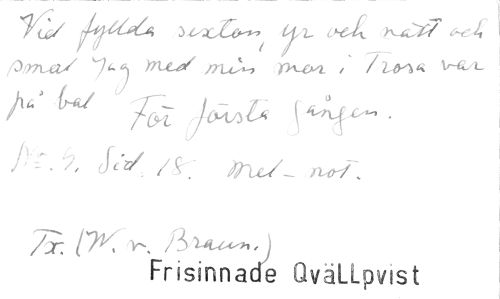 Vid fyllda sexton, yr och nätt och
smal Jag med min mor i Trosa var
på bal För första gången.
No. 5. Sid. 18. Mel-not.
Tx. (W. v. Braun.)
Frisinnade QväLLpvist